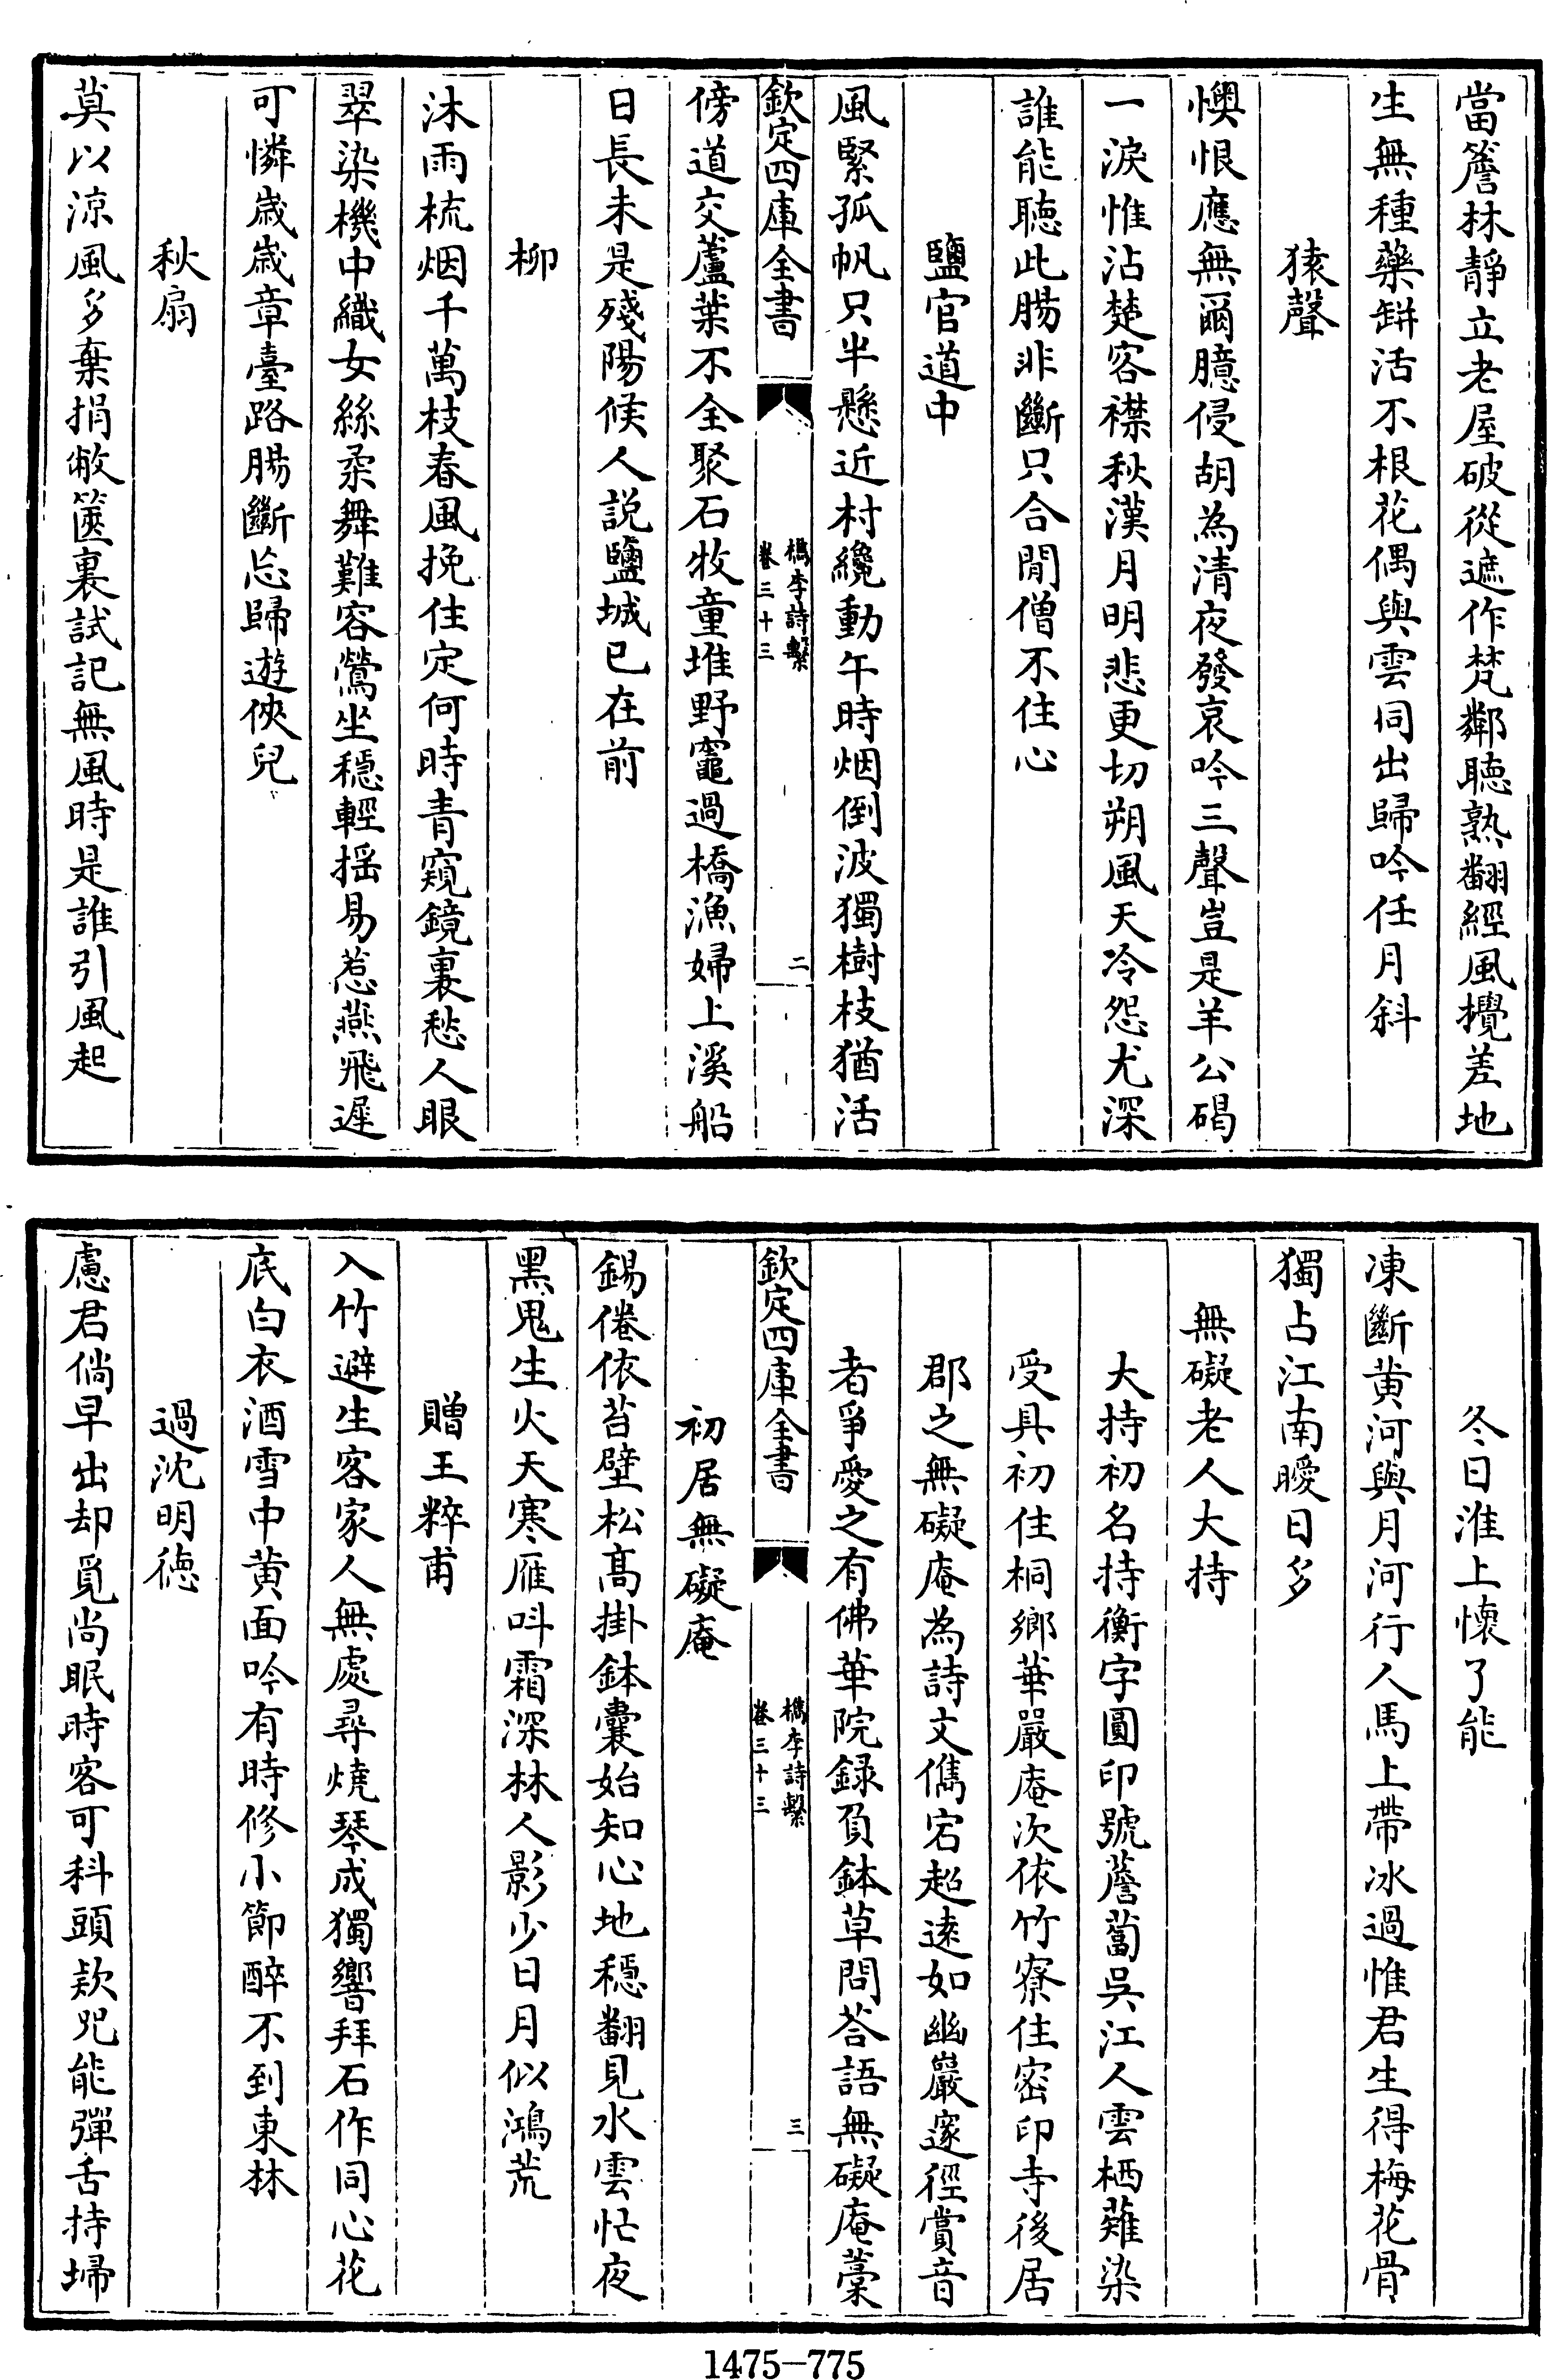 當簷林靜立老屋破從遮作梵鄰聽熟翻經風攪差地
生無種藥缾活不根花偶與雲同出歸吟任月斜
猿聲
懊恨應無爾臆侵胡為清夜發哀吟三聲豈是羊公碣
一淚惟沾楚客襟秋漢月明悲更切朔風天冷怨尤深
誰能聽此腸非斷只合閒僧不住心
鹽官道中
風緊孤帆只半懸近村纔動午時烟倒波獨樹枝猶活
欽定四庫全書
檇李詩繫
卷三十三
二
傍道交蘆葉不全聚石牧童堆野竈過橋漁婦上溪船
日長未是殘陽候人説鹽城已在前
柳
沐雨梳烟千萬枝春風挽住定何時青窺鏡裏愁人眼
翠染機中織女絲柔舞難容鶯坐穩輕揺易惹燕飛遲
可憐歳歳章臺路腸斷忘歸遊俠兒
秋扇
莫以涼風多棄捐敝篋裏試記無風時是誰引風起
冬日淮上懷了能
凍斷黄河與月河行人馬上帶冰過惟君生得梅花骨
獨占江南曖日多
無礙老人大持
大持初名持衡字圓印號薝蔔吳江人雲栖薙染
受具初住桐鄉華嚴庵次依竹寮住密印寺後居
郡之無礙庵為詩文儁宕超逺如幽巖邃徑賞音
者爭愛之有佛華院録負鉢草問答語無礙庵藁
欽定四庫全書
檇李詩繫
卷三十三
三
初居無礙庵
錫倦依苔壁松髙掛鉢囊始知心地穩翻見水雲忙夜
黑鬼生火天寒雁呌霜深林人影少日月似鴻荒
贈王粹甫
入竹避生客家人無處尋燒琴成獨響拜石作同心花
底白衣酒雪中黄面吟有時修小節醉不到東林
過沈明徳
慮君倘早出却覓尚眠時客可科頭欵兒能彈舌持埽
1475-775